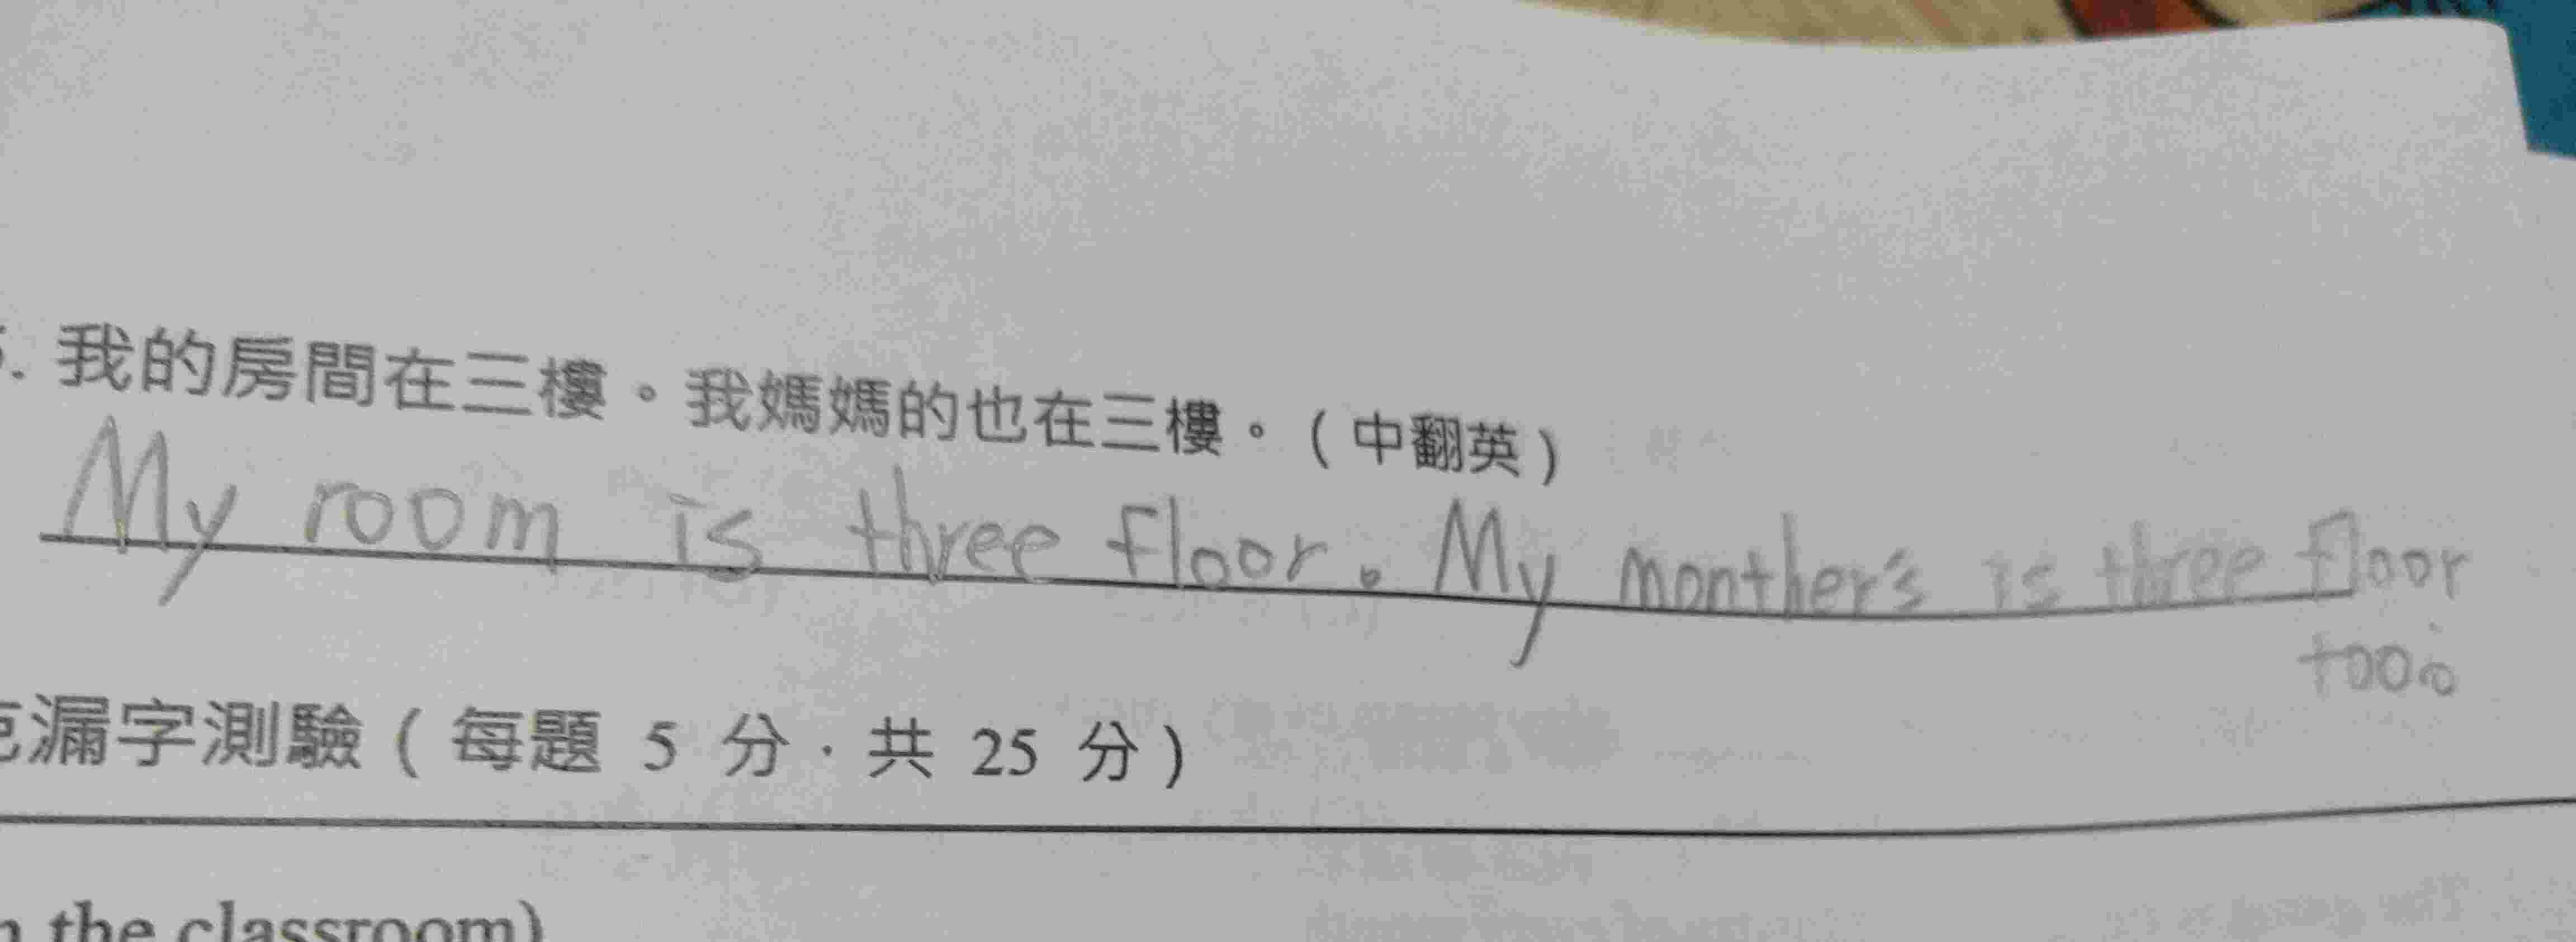 . 我的房間在三樓。我媽媽的也在三樓。(中翻英)
My room is three floor. My monther's is three floor
too.
漏字測驗(每題 5 分.共 25 分)
the classroom)